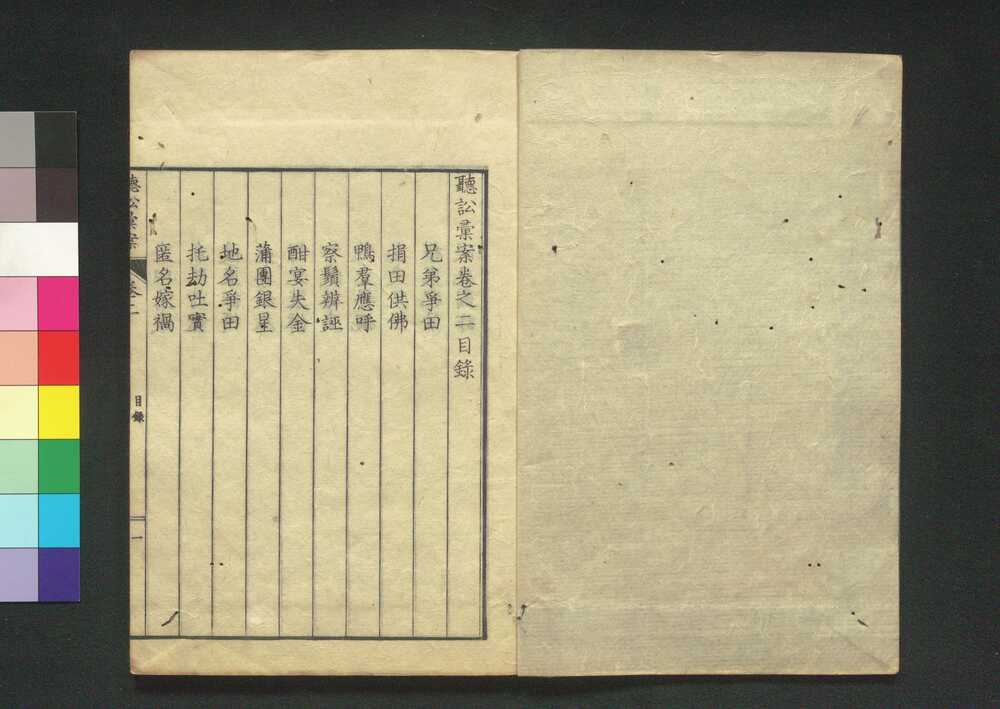 聽訟彙案卷之二目錄
兄弟爭田
捐田供佛
鴨羣應呼
察鬚辨誣
酣宴失金
蒲團銀星
地名爭田
托劫吐實
匿名嫁禍
聽訟彙案
卷二
目錄
一